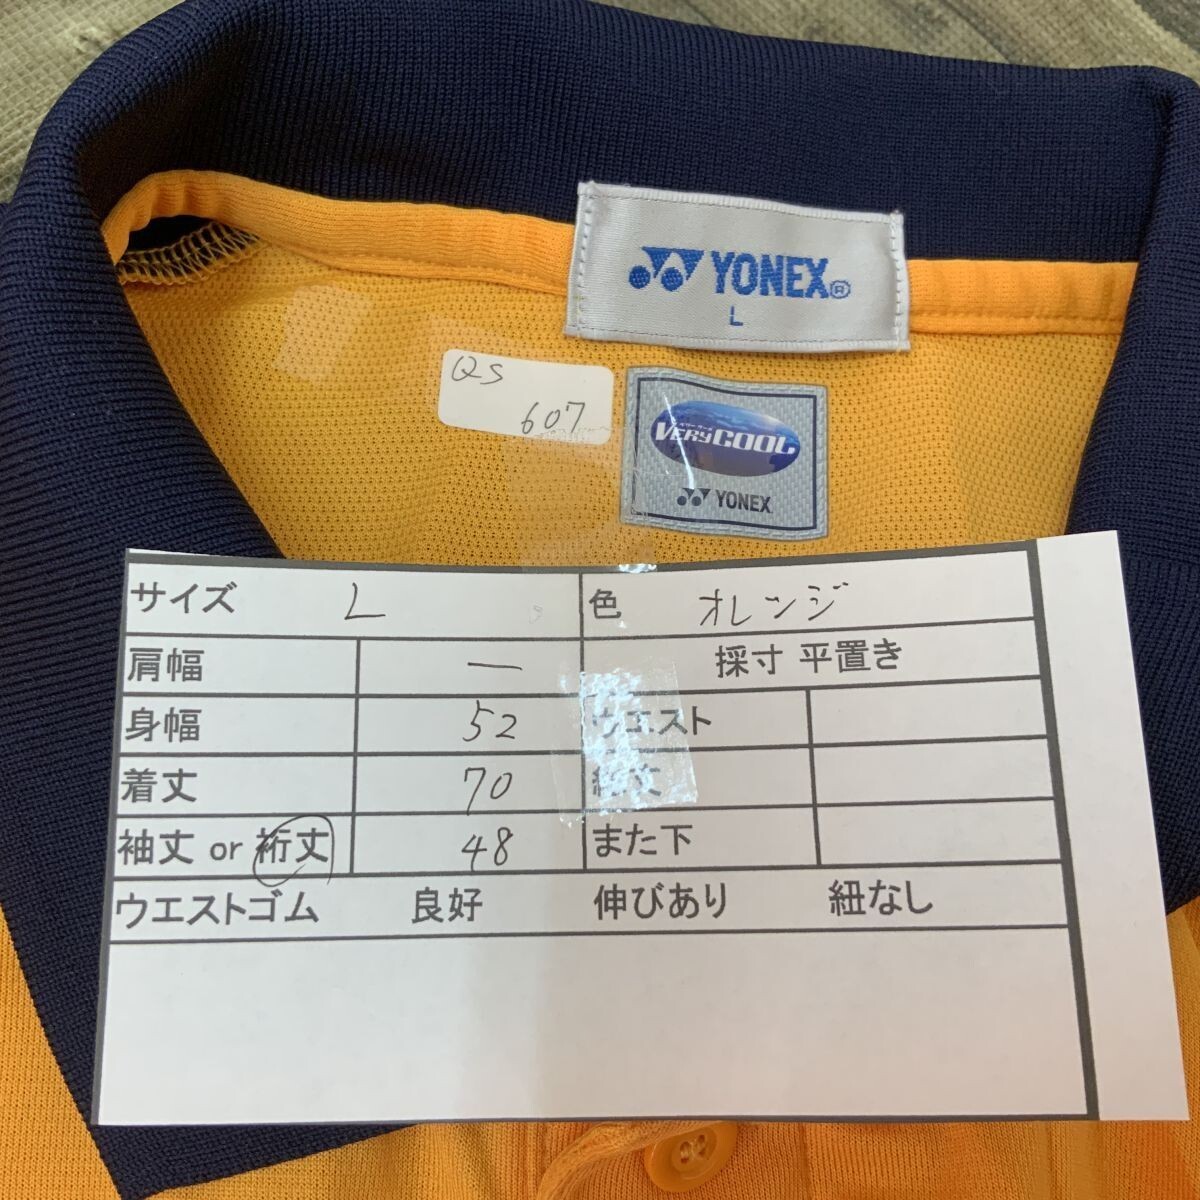 YONEX®
L
QS
607
ベリークール
VERYCOOL
YONEX
サイズ L 色 オレンジ
肩幅 — 採寸 平置き
身幅 52 ウエスト
着丈 70 総丈
袖丈 or 裄丈 48 また下
ウエストゴム 良好 伸びあり 紐なし